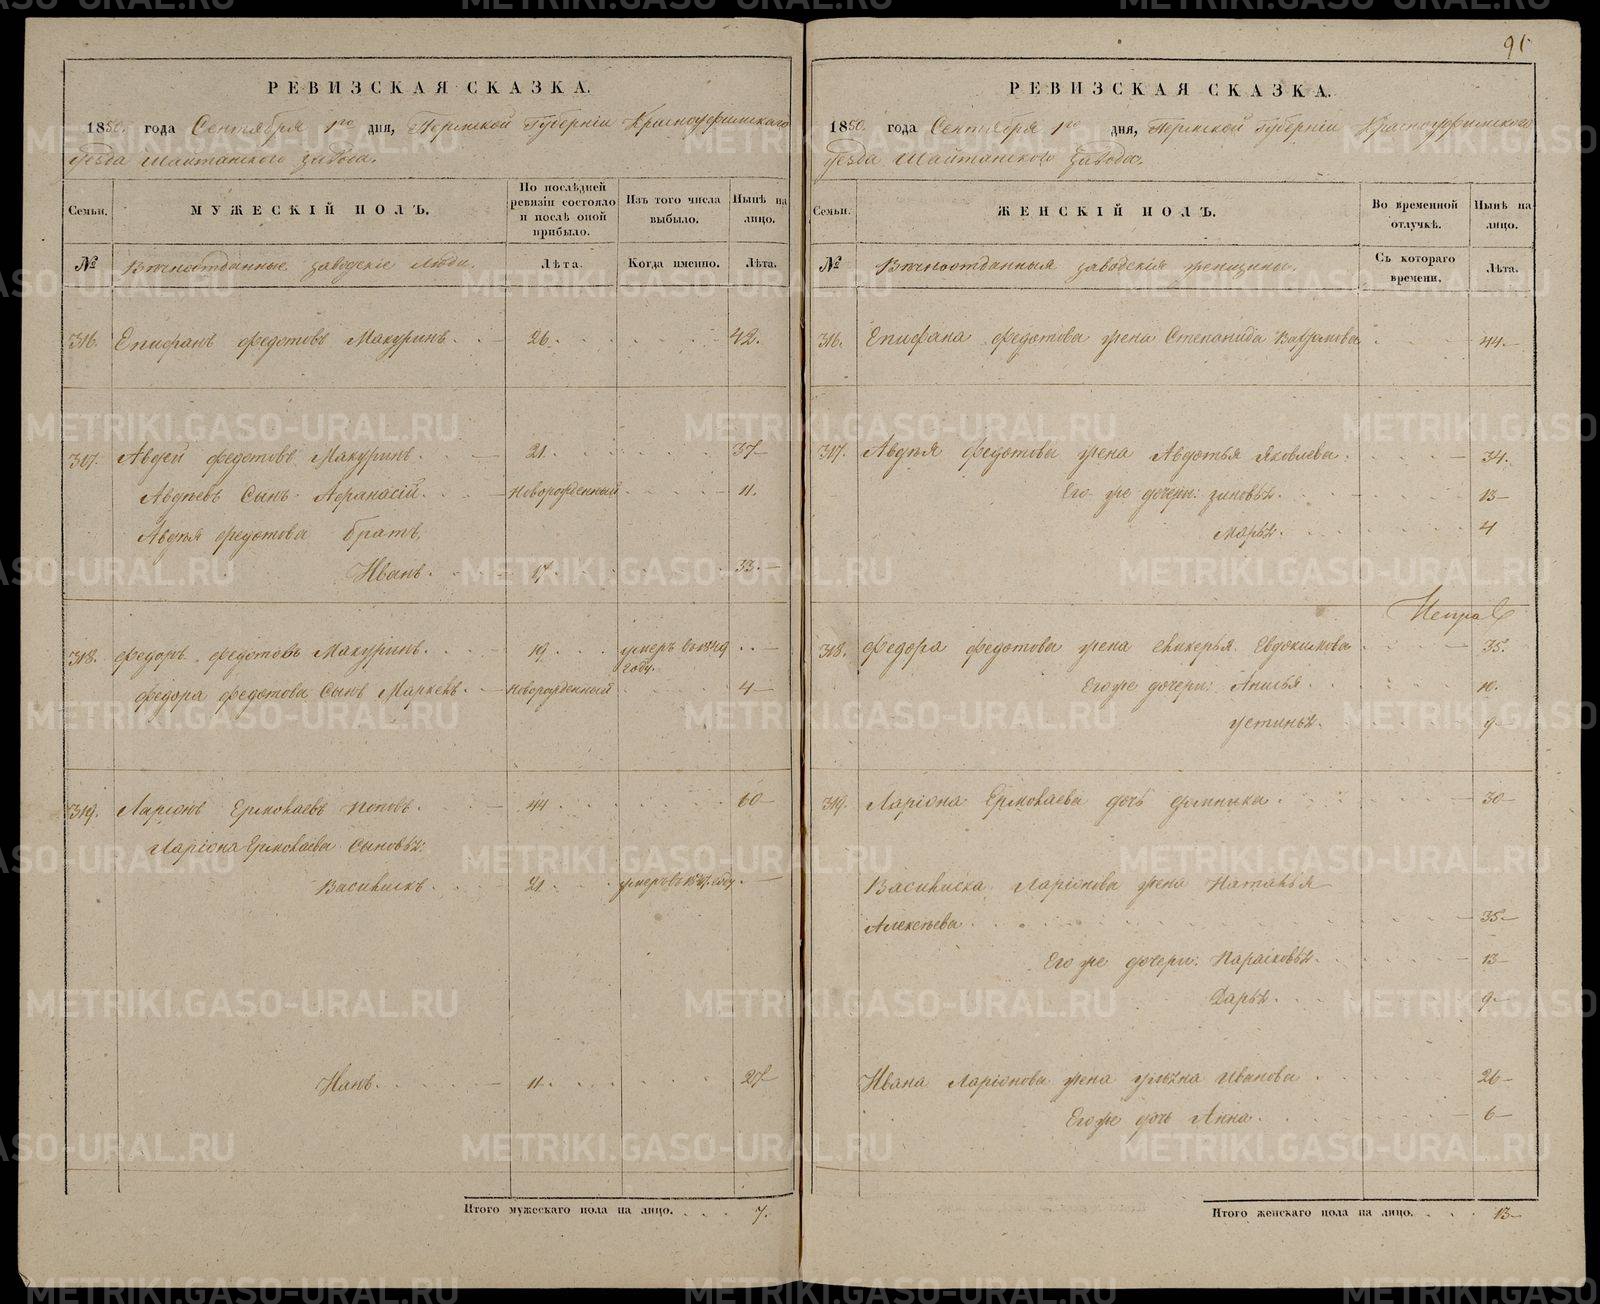 91
РЕВИЗСКАЯ СКАЗКА.
1850. года Сентября 1го дня, Пермской Губерніи Красноуфимскаго
уезда Шайтанского завода.
Семьи.
МУЖЕСКІЙ ПОЛЪ.
По послѣдней ревизіи состояло и послѣ оной прибыло.
Изъ того числа выбыло.
Нынѣ на лицо.
№
Вѣчноотданные заводскіе люди.
Лѣта.
Когда именно.
Лѣта.
316. Епифанъ Федотовъ Макуринъ. 26. 42.
317. Авдей Федотовъ Макуринъ. 21. 37
Авдѣевъ Сынъ Афанасій. Новорожденный 11.
Авдѣя Федотова братъ,
Иванъ. 17. 33.
318. Федоръ Федотовъ Макуринъ. 19. умеръ въ 1849 году.
Федора Федотова Сынъ Маркелъ. Новорожденный 4
319. Ларіонъ Ермолаевъ Поповъ. 44 60
Ларіона Ермолаева Сыновья:
Василискъ. 21. умеръ въ году.
Иванъ. 11. 27
Итого мужескаго пола на лицо. 7.
РЕВИЗСКАЯ СКАЗКА.
1850. года Сентября 1го дня, Пермской Губерніи Красноуфимского
уезда Шайтанского завода.
Семьи.
ЖЕНСКІЙ ПОЛЪ.
Во временной отлучкѣ.
Нынѣ на лицо.
№
Вѣчноотданныя заводскія женщины.
Съ котораго времени.
Лѣта.
316. Епифана Федотова жена Степанида 44
317. Авдѣя Федотова жена Авдотья Яковлева. 34.
Его же дочери: Зиновья. 13
Марья. 4
318. Федора Федотова жена Евдокимова 35.
Его же дочери: Анисья. 10.
Устинья. 9
319. Ларіона Ермолаева дочь Домника. 30
Василиска Ларіонова жена Наталья
Алексѣева. 35
Его же дочери: Парасковья. 13
Дарья. 9
Ивана Ларіонова жена Ульяна Иванова 26
Его же дочь Анна. 6
Итого женскаго пола на лицо. 13
METRIKI.GASO-URAL.RU